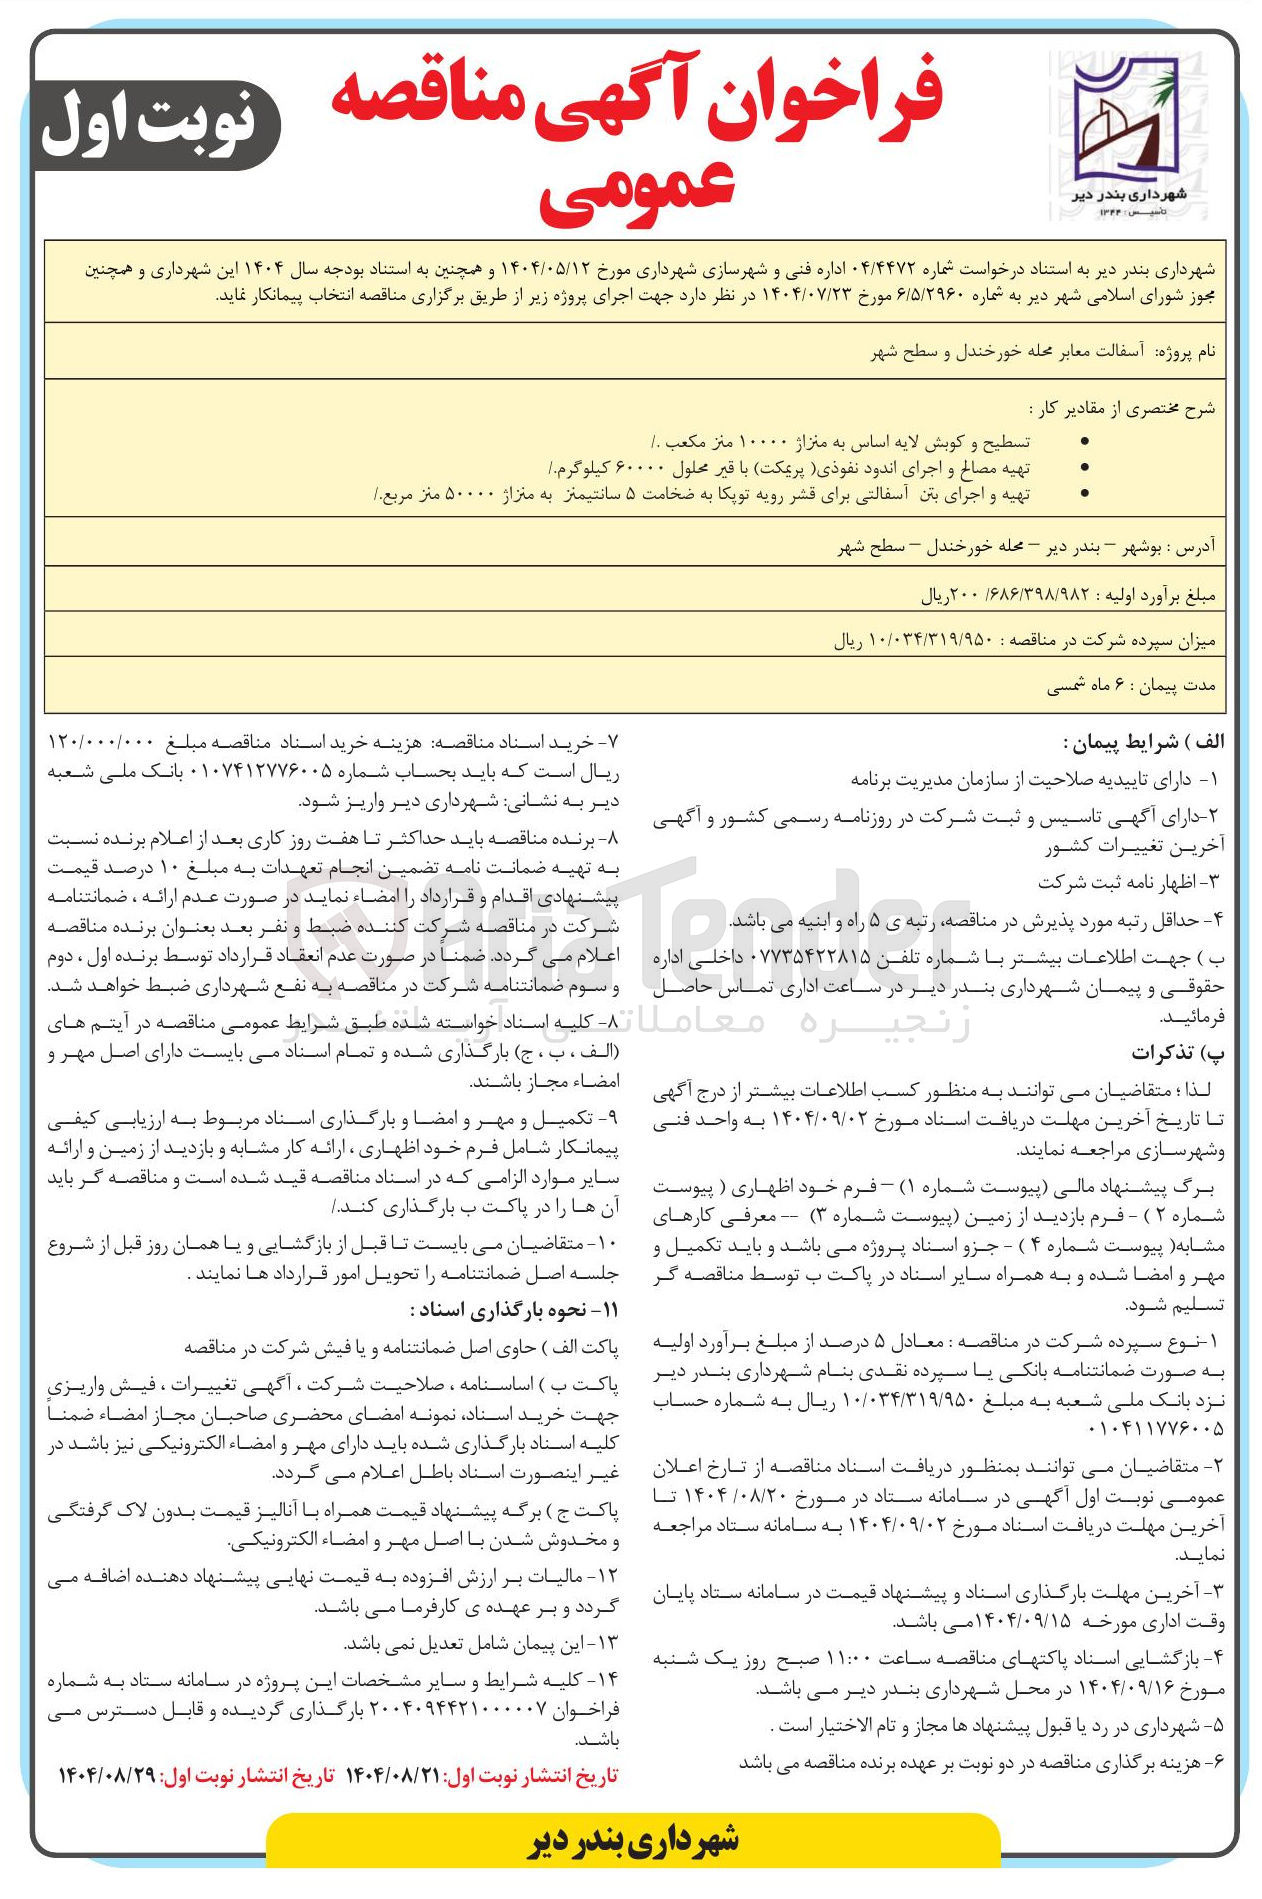 فراخوان آگهی مناقصه
عمومی
نوبت اول
شهرداری بندر دیر
تأسیس : ۱۳۴۴
شهرداری بندر دیر به استناد درخواست شماره ۰۴/۴۴۷۲ اداره فنی و شهرسازی شهرداری مورخ ۱۴۰۴/۰۵/۱۲ و همچنین به استناد بودجه سال ۱۴۰۴ این شهرداری و همچنین
مجوز شورای اسلامی شهر دیر به شماره ۶/۵/۲۹۶۰ مورخ ۱۴۰۴/۰۷/۲۳ در نظر دارد جهت اجرای پروژه زیر از طریق برگزاری مناقصه انتخاب پیمانکار نماید.
نام پروژه: آسفالت معابر محله خورخندل و سطح شهر
شرح مختصری از مقادیر کار :
• تسطیح و کوبش لایه اساس به متراژ ۱۰۰۰۰ متر مکعب ./
• تهیه مصالح و اجرای اندود نفوذی( پریمکت) با قیر محلول ۶۰۰۰۰ کیلوگرم./
• تهیه و اجرای بتن آسفالتی برای قشر رویه توپکا به ضخامت ۵ سانتیمتر به متراژ ۵۰۰۰۰ متر مربع./
آدرس : بوشهر – بندر دیر – محله خورخندل – سطح شهر
مبلغ برآورد اولیه : ۲۰۰ /۶۸۶/۳۹۸/۹۸۲ریال
میزان سپرده شرکت در مناقصه : ۱۰/۰۳۴/۳۱۹/۹۵۰ ریال
مدت پیمان : ۶ ماه شمسی
الف ) شرایط پیمان :
۱- دارای تاییدیه صلاحیت از سازمان مدیریت برنامه
۲-دارای آگهی تاسیس و ثبت شرکت در روزنامه رسمی کشور و آگهی
آخرین تغییرات کشور
۳- اظهار نامه ثبت شرکت
۴- حداقل رتبه مورد پذیرش در مناقصه، رتبه ی ۵ راه و ابنیه می باشد.
ب ) جهت اطلاعات بیشتر با شماره تلفن ۰۷۷۳۵۴۲۲۸۱۵ داخلی اداره
حقوقی و پیمان شهرداری بندر دیر در ساعت اداری تماس حاصل
فرمائید.
پ) تذکرات
لذا ؛ متقاضیان می توانند به منظور کسب اطلاعات بیشتر از درج آگهی
تا تاریخ آخرین مهلت دریافت اسناد مورخ ۱۴۰۴/۰۹/۰۲ به واحد فنی
وشهرسازی مراجعه نمایند.
برگ پیشنهاد مالی (پیوست شماره ۱) – فرم خود اظهاری ( پیوست
شماره ۲ ) - فرم بازدید از زمین (پیوست شماره ۳) -- معرفی کارهای
مشابه( پیوست شماره ۴ ) - جزو اسناد پروژه می باشد و باید تکمیل و
مهر و امضا شده و به همراه سایر اسناد در پاکت ب توسط مناقصه گر
تسلیم شود.
۱-نوع سپرده شرکت در مناقصه : معادل ۵ درصد از مبلغ برآورد اولیه
به صورت ضمانتنامه بانکی یا سپرده نقدی بنام شهرداری بندر دیر
نزد بانک ملی شعبه به مبلغ ۱۰/۰۳۴/۳۱۹/۹۵۰ ریال به شماره حساب
۰۱۰۴۱۱۷۷۶۰۰۵
۲- متقاضیان می توانند بمنظور دریافت اسناد مناقصه از تارخ اعلان
عمومی نوبت اول آگهی در سامانه ستاد در مورخ ۰۸/۲۰/ ۱۴۰۴ تا
آخرین مهلت دریافت اسناد مورخ ۱۴۰۴/۰۹/۰۲ به سامانه ستاد مراجعه
نماید.
۳- آخرین مهلت بارگذاری اسناد و پیشنهاد قیمت در سامانه ستاد پایان
وقت اداری مورخه ۱۴۰۴/۰۹/۱۵می باشد.
۴- بازگشایی اسناد پاکتهای مناقصه ساعت ۱۱:۰۰ صبح روز یک شنبه
مورخ ۱۴۰۴/۰۹/۱۶ در محل شهرداری بندر دیر می باشد.
۵- شهرداری در رد یا قبول پیشنهاد ها مجاز و تام الاختیار است .
۶- هزینه برگذاری مناقصه در دو نوبت بر عهده برنده مناقصه می باشد
۷- خرید اسناد مناقصه: هزینه خرید اسناد مناقصه مبلغ ۱۲۰/۰۰۰/۰۰۰
ریال است که باید بحساب شماره ۰۱۰۷۴۱۲۷۷۶۰۰۵ بانک ملی شعبه
دیر به نشانی: شهرداری دیر واریز شود.
۸- برنده مناقصه باید حداکثر تا هفت روز کاری بعد از اعلام برنده نسبت
به تهیه ضمانت نامه تضمین انجام تعهدات به مبلغ ۱۰ درصد قیمت
پیشنهادی اقدام و قرارداد را امضاء نماید در صورت عدم ارائه ، ضمانتنامه
شرکت در مناقصه شرکت کننده ضبط و نفر بعد بعنوان برنده مناقصه
اعلام می گردد. ضمناً در صورت عدم انعقاد قرارداد توسط برنده اول ، دوم
و سوم ضمانتنامه شرکت در مناقصه به نفع شهرداری ضبط خواهد شد.
۸- کلیه اسناد خواسته شده طبق شرایط عمومی مناقصه در آیتم های
(الف ، ب ، ج) بارگذاری شده و تمام اسناد می بایست دارای اصل مهر و
امضاء مجاز باشند.
۹- تکمیل و مهر و امضا و بارگذاری اسناد مربوط به ارزیابی کیفی
پیمانکار شامل فرم خود اظهاری ، ارائه کار مشابه و بازدید از زمین و ارائه
سایر موارد الزامی که در اسناد مناقصه قید شده است و مناقصه گر باید
آن ها را در پاکت ب بارگذاری کند./
۱۰- متقاضیان می بایست تا قبل از بازگشایی و یا همان روز قبل از شروع
جلسه اصل ضمانتنامه را تحویل امور قرارداد ها نمایند .
۱۱- نحوه بارگذاری اسناد :
پاکت الف ) حاوی اصل ضمانتنامه و یا فیش شرکت در مناقصه
پاکت ب ) اساسنامه ، صلاحیت شرکت ، آگهی تغییرات ، فیش واریزی
جهت خرید اسناد، نمونه امضای محضری صاحبان مجاز امضاء ضمناً
کلیه اسناد بارگذاری شده باید دارای مهر و امضاء الکترونیکی نیز باشد در
غیر اینصورت اسناد باطل اعلام می گردد.
پاکت ج ) برگه پیشنهاد قیمت همراه با آنالیز قیمت بدون لاک گرفتگی
و مخدوش شدن با اصل مهر و امضاء الکترونیکی.
۱۲- مالیات بر ارزش افزوده به قیمت نهایی پیشنهاد دهنده اضافه می
گردد و بر عهده ی کارفرما می باشد.
۱۳- این پیمان شامل تعدیل نمی باشد.
۱۴- کلیه شرایط و سایر مشخصات این پروژه در سامانه ستاد به شماره
فراخوان ۲۰۰۴۰۹۴۴۲۱۰۰۰۰۰۷ بارگذاری گردیده و قابل دسترس می
باشد.
تاریخ انتشار نوبت اول: ۱۴۰۴/۰۸/۲۱ تاریخ انتشار نوبت اول: ۱۴۰۴/۰۸/۲۹
شهرداری بندر دیر
AriaTender
زنجیره معاملاتی آریاتندر